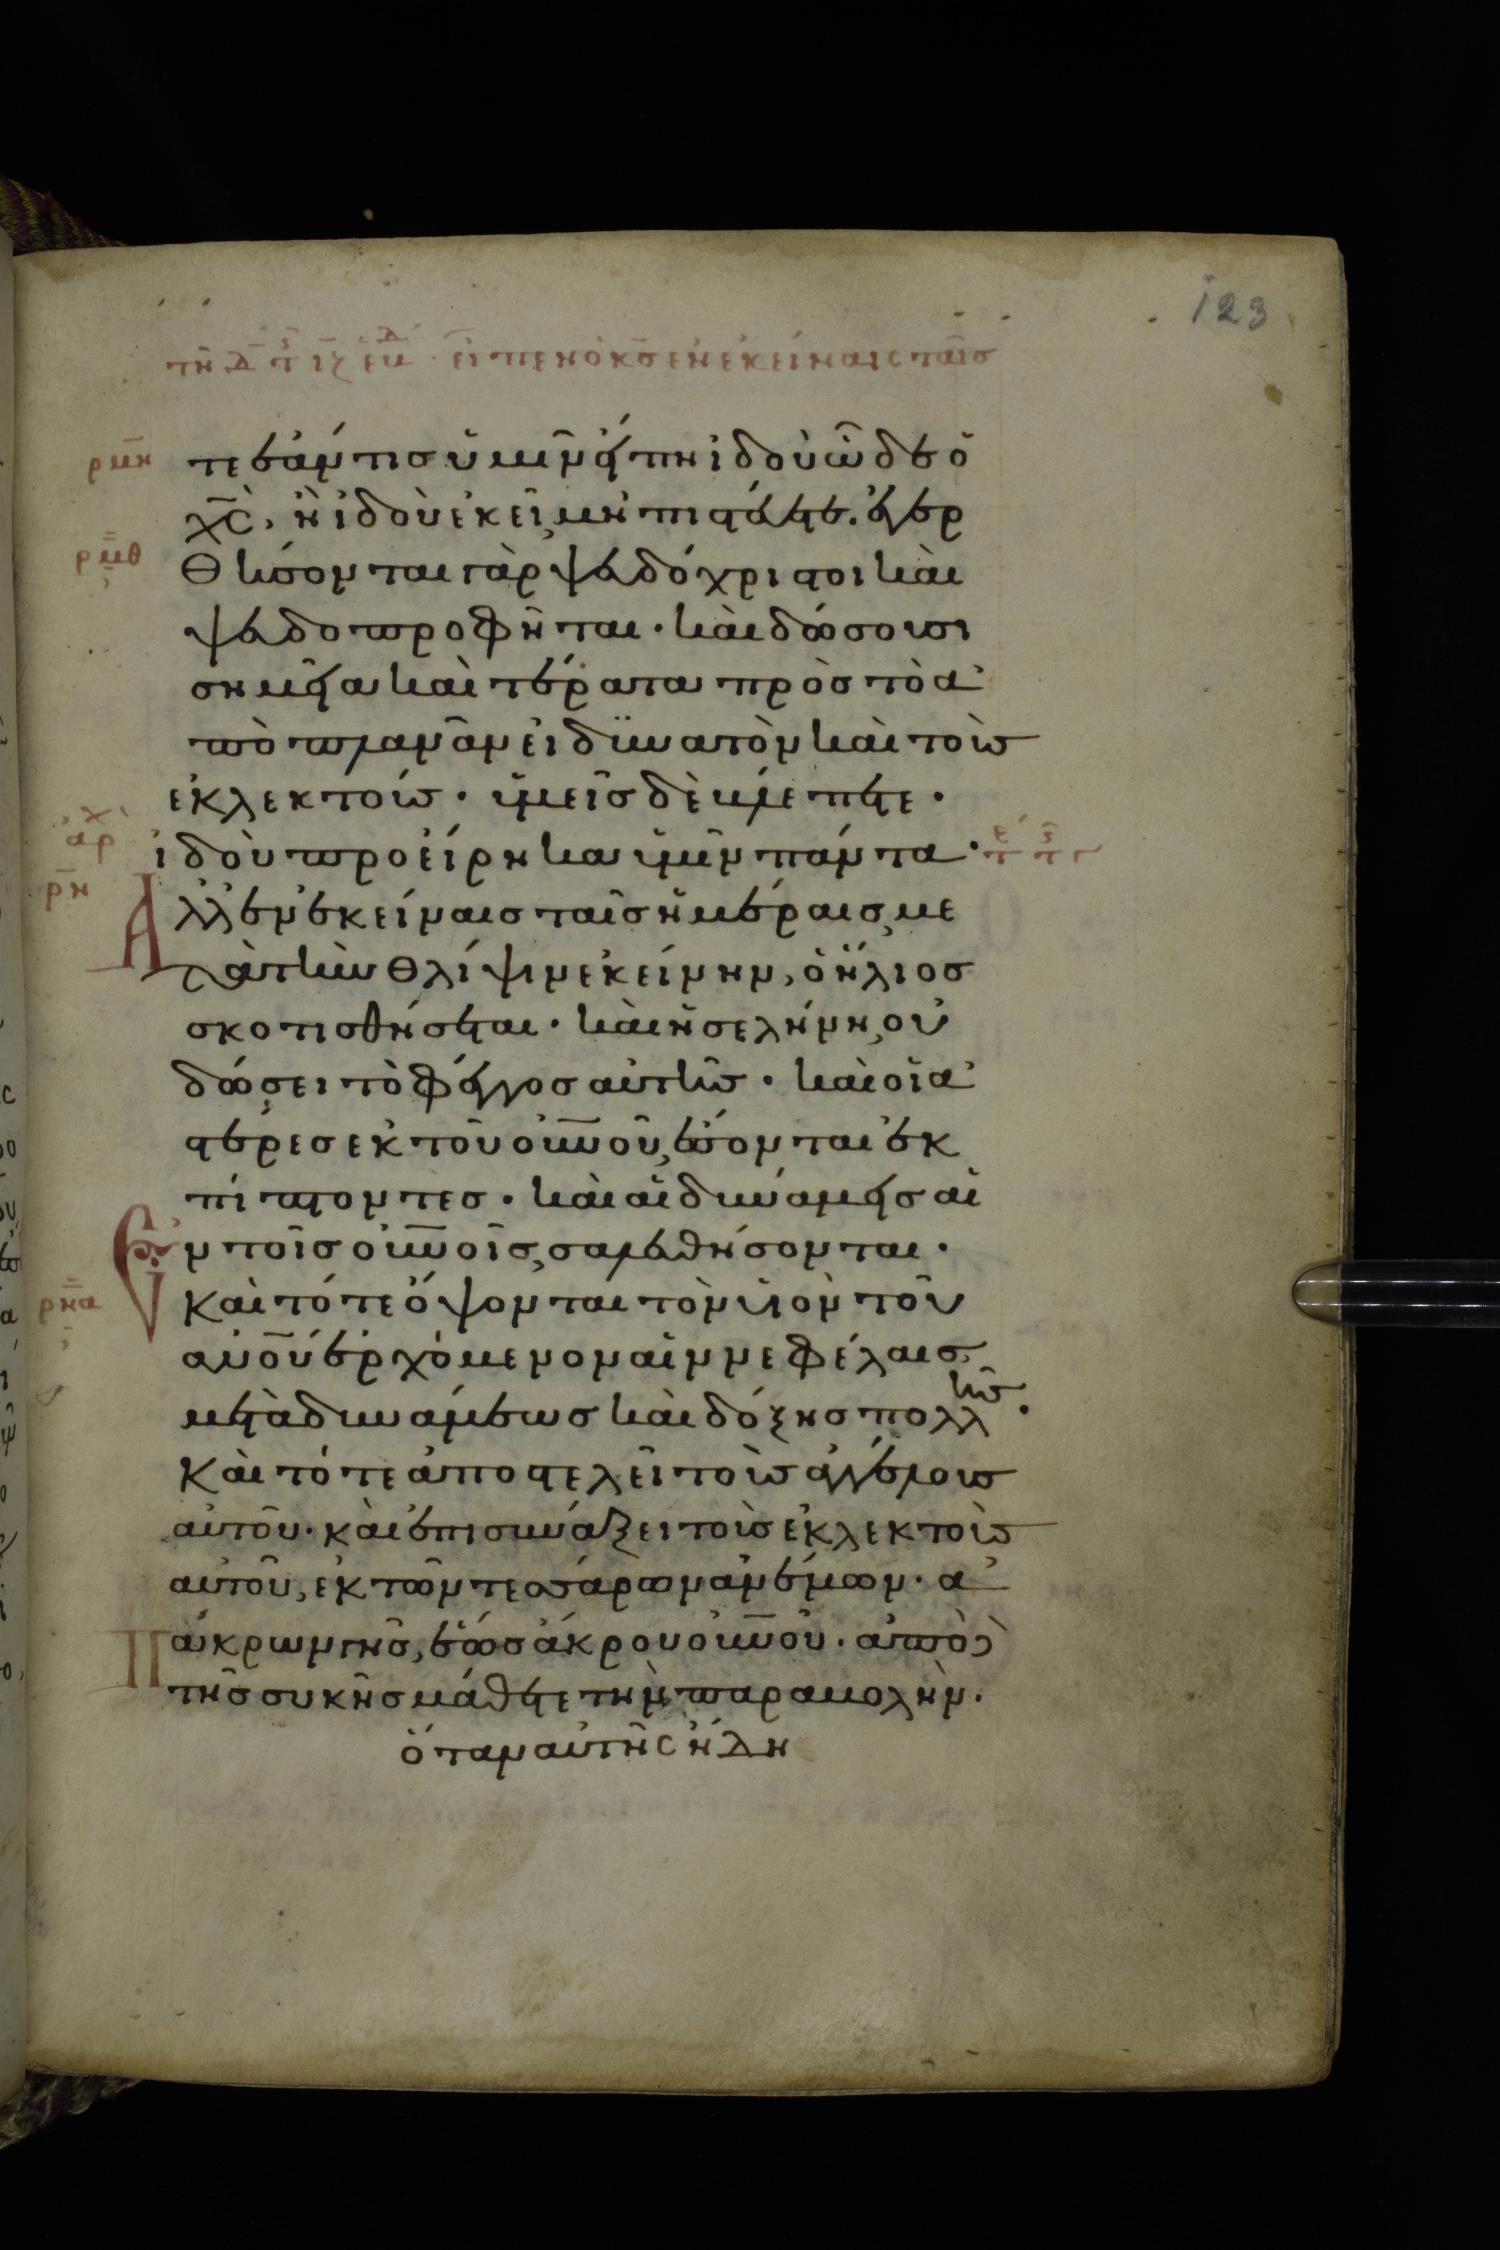 123
τῆ δ τ ιζ εβδ · εἶπεν ὁ κς ἐν ἐκείναις ταῖς
ρμη
τε ἐάν τις ὑμῖν εἴπῃ ἰδοὺ ὧδε ὁ
χς, ἢ ἰδοὺ ἐκεῖ, μὴ πιστεύετε. ἐγερ
ρμθ
θήσονται γὰρ ψευδόχριστοι καὶ
ψευδοπροφῆται · καὶ δώσουσι
σημεῖα καὶ τέρατα πρὸς τὸ ἀ
ποπλανᾶν εἰ δυνατὸν καὶ τοὺς
ἐκλεκτούς · ὑμεῖς δὲ βλέπετε ·
ἀρχ
ἰδοὺ προείρηκα ὑμῖν πάντα ·
ρν
Ἀλλ ἐν ἐκείναις ταῖς ἡμέραις, με
τὰ τὴν θλίψιν ἐκείνην, ὁ ἥλιος
σκοτισθήσεται · καὶ ἡ σελήνη, οὐ
δώσει τὸ φέγγος αὐτῆς · καὶ οἱ ἀ
στέρες ἐκ τοῦ οὐνοῦ, ἔσονται ἐκ
πίπτοντες · καὶ αἱ δυνάμεις αἱ
ἐν τοῖς οὐνοῖς, σαλευθήσονται ·
ρνα
Καὶ τότε ὄψονται τὸν υἱὸν τοῦ
ανου ἐρχόμενον ἐν νεφέλαις,
μετὰ δυνάμεως καὶ δόξης πολλῆς ·
Καὶ τότε ἀποστελεῖ τοὺς ἀγγέλους
αὐτοῦ · καὶ ἐπισυνάξει τοὺς ἐκλεκτοὺς
αὐτοῦ, ἐκ τῶν τεσσάρων ἀνέμων · ἀ
π ἄκρων γῆς, ἕως ἄκρου οὐνοῦ · ἀπὸ δὲ
τῆς συκῆς μάθετε τὴν παραβολήν.
ὅταν αὐτῆς ἤδη